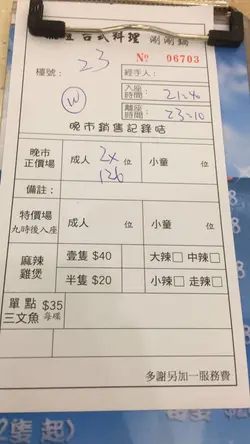 台式料理 涮涮鍋
No 96703
檯號： 23
經手人：
入座時間： 21=40
離座時間： 23=10
W
晚市銷售記錄咭
晚市正價場 成人 2x 位 小童 位
126
備註：
特價場 九時後入座 成人 位 小童 位
麻辣雞煲 壹隻 $40 大辣□ 中辣□
半隻 $20 小辣□ 走辣□
單點 $35
三文魚 每碟
多謝另加一服務費
隻起)